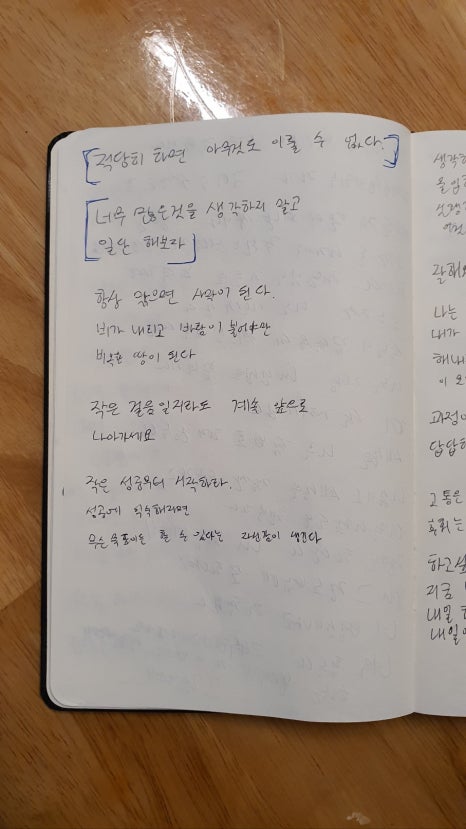 적당히 하면 아무것도 이룰 수 없다.
너무 많은것을 생각하지 말고
일단 해보자
항상 맑으면 사막이 된다.
비가 내리고 바람이 불어야만
비옥한 땅이 된다
작은 걸음일지라도 계속 앞으로
나아가세요
작은 성공부터 시작하라.
성공에 익숙해지면
무슨 목표이든 할 수 있다는 자신감이 생긴다
생각하
몰입하
잘해
나는
내가
해내
이
과정이
답답하
고통은
후회는
하고싶
지금
내일
내일